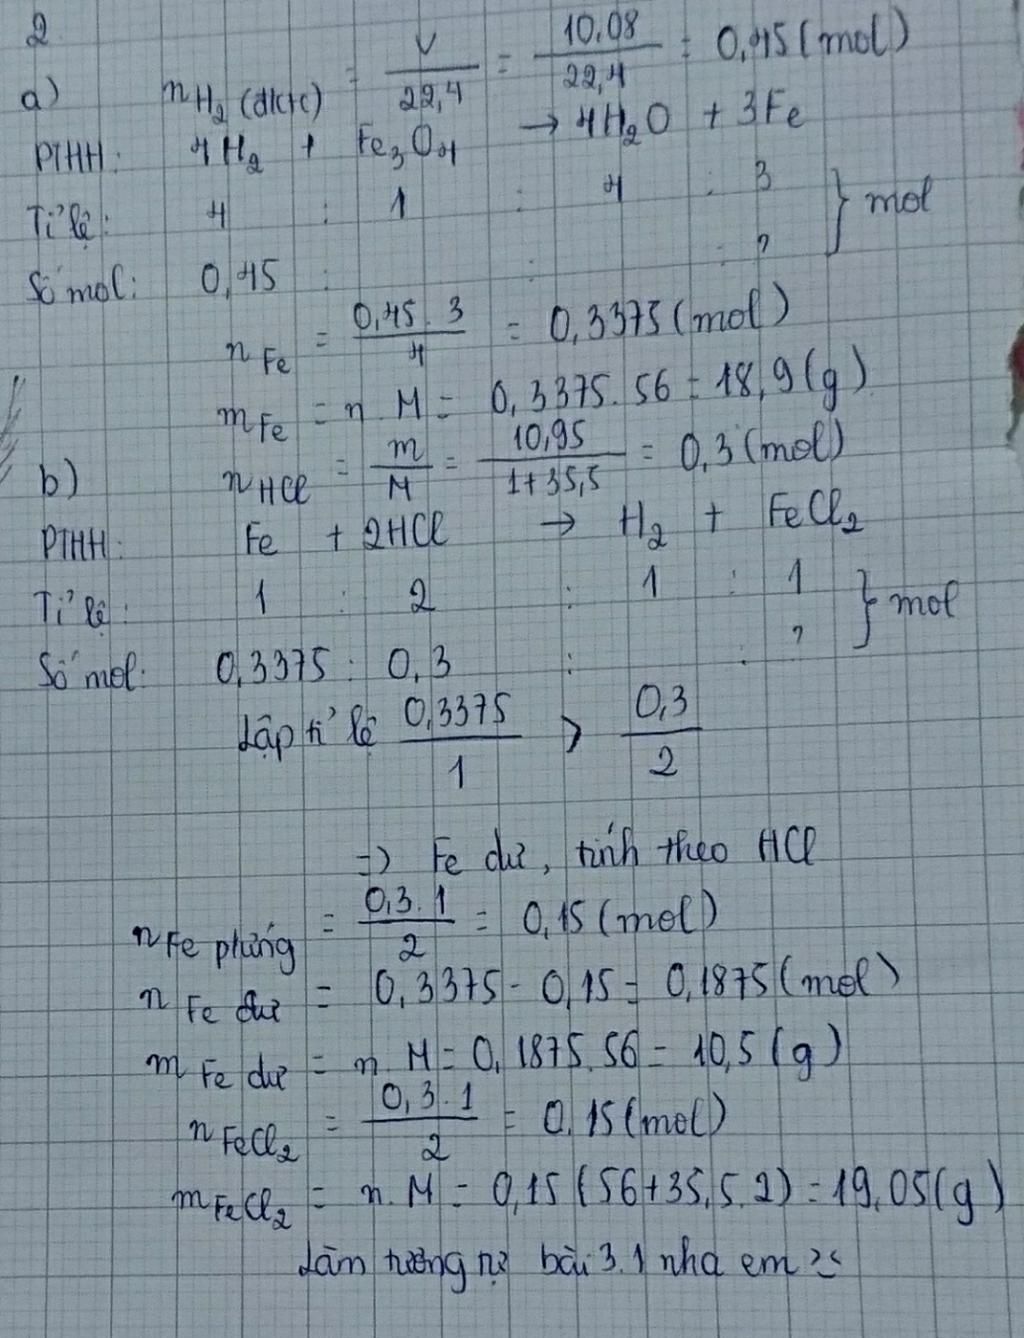 2
a) n H₂ (đktc) = V/22,4 = 10,08/22,4 = 0,45 (mol)
PTHH: 4H₂ + Fe₃O₄ → 4H₂O + 3Fe
Tỉ lệ: 4 : 1 : 4 : 3 } mol
Số mol: 0,45 : : : ?
n Fe = 0,45.3/4 = 0,3375 (mol)
m Fe = n.M = 0,3375.56 = 18,9 (g)
b) n HCl = m/M = 10,95/1+35,5 = 0,3 (mol)
PTHH: Fe + 2HCl → H₂ + FeCl₂
Tỉ lệ: 1 : 2 : 1 : 1 } mol
Số mol: 0,3375 : 0,3 : : ?
Lập tỉ lệ 0,3375/1 > 0,3/2
=> Fe dư, tính theo HCl
n Fe phứng = 0,3.1/2 = 0,15 (mol)
n Fe dư = 0,3375 - 0,15 = 0,1875 (mol)
m Fe dư = n.M = 0,1875.56 = 10,5 (g)
n FeCl₂ = 0,3.1/2 = 0,15 (mol)
m FeCl₂ = n.M = 0,15 (56+35,5.2) = 19,05 (g)
Làm tương tự bài 3.1 nha em